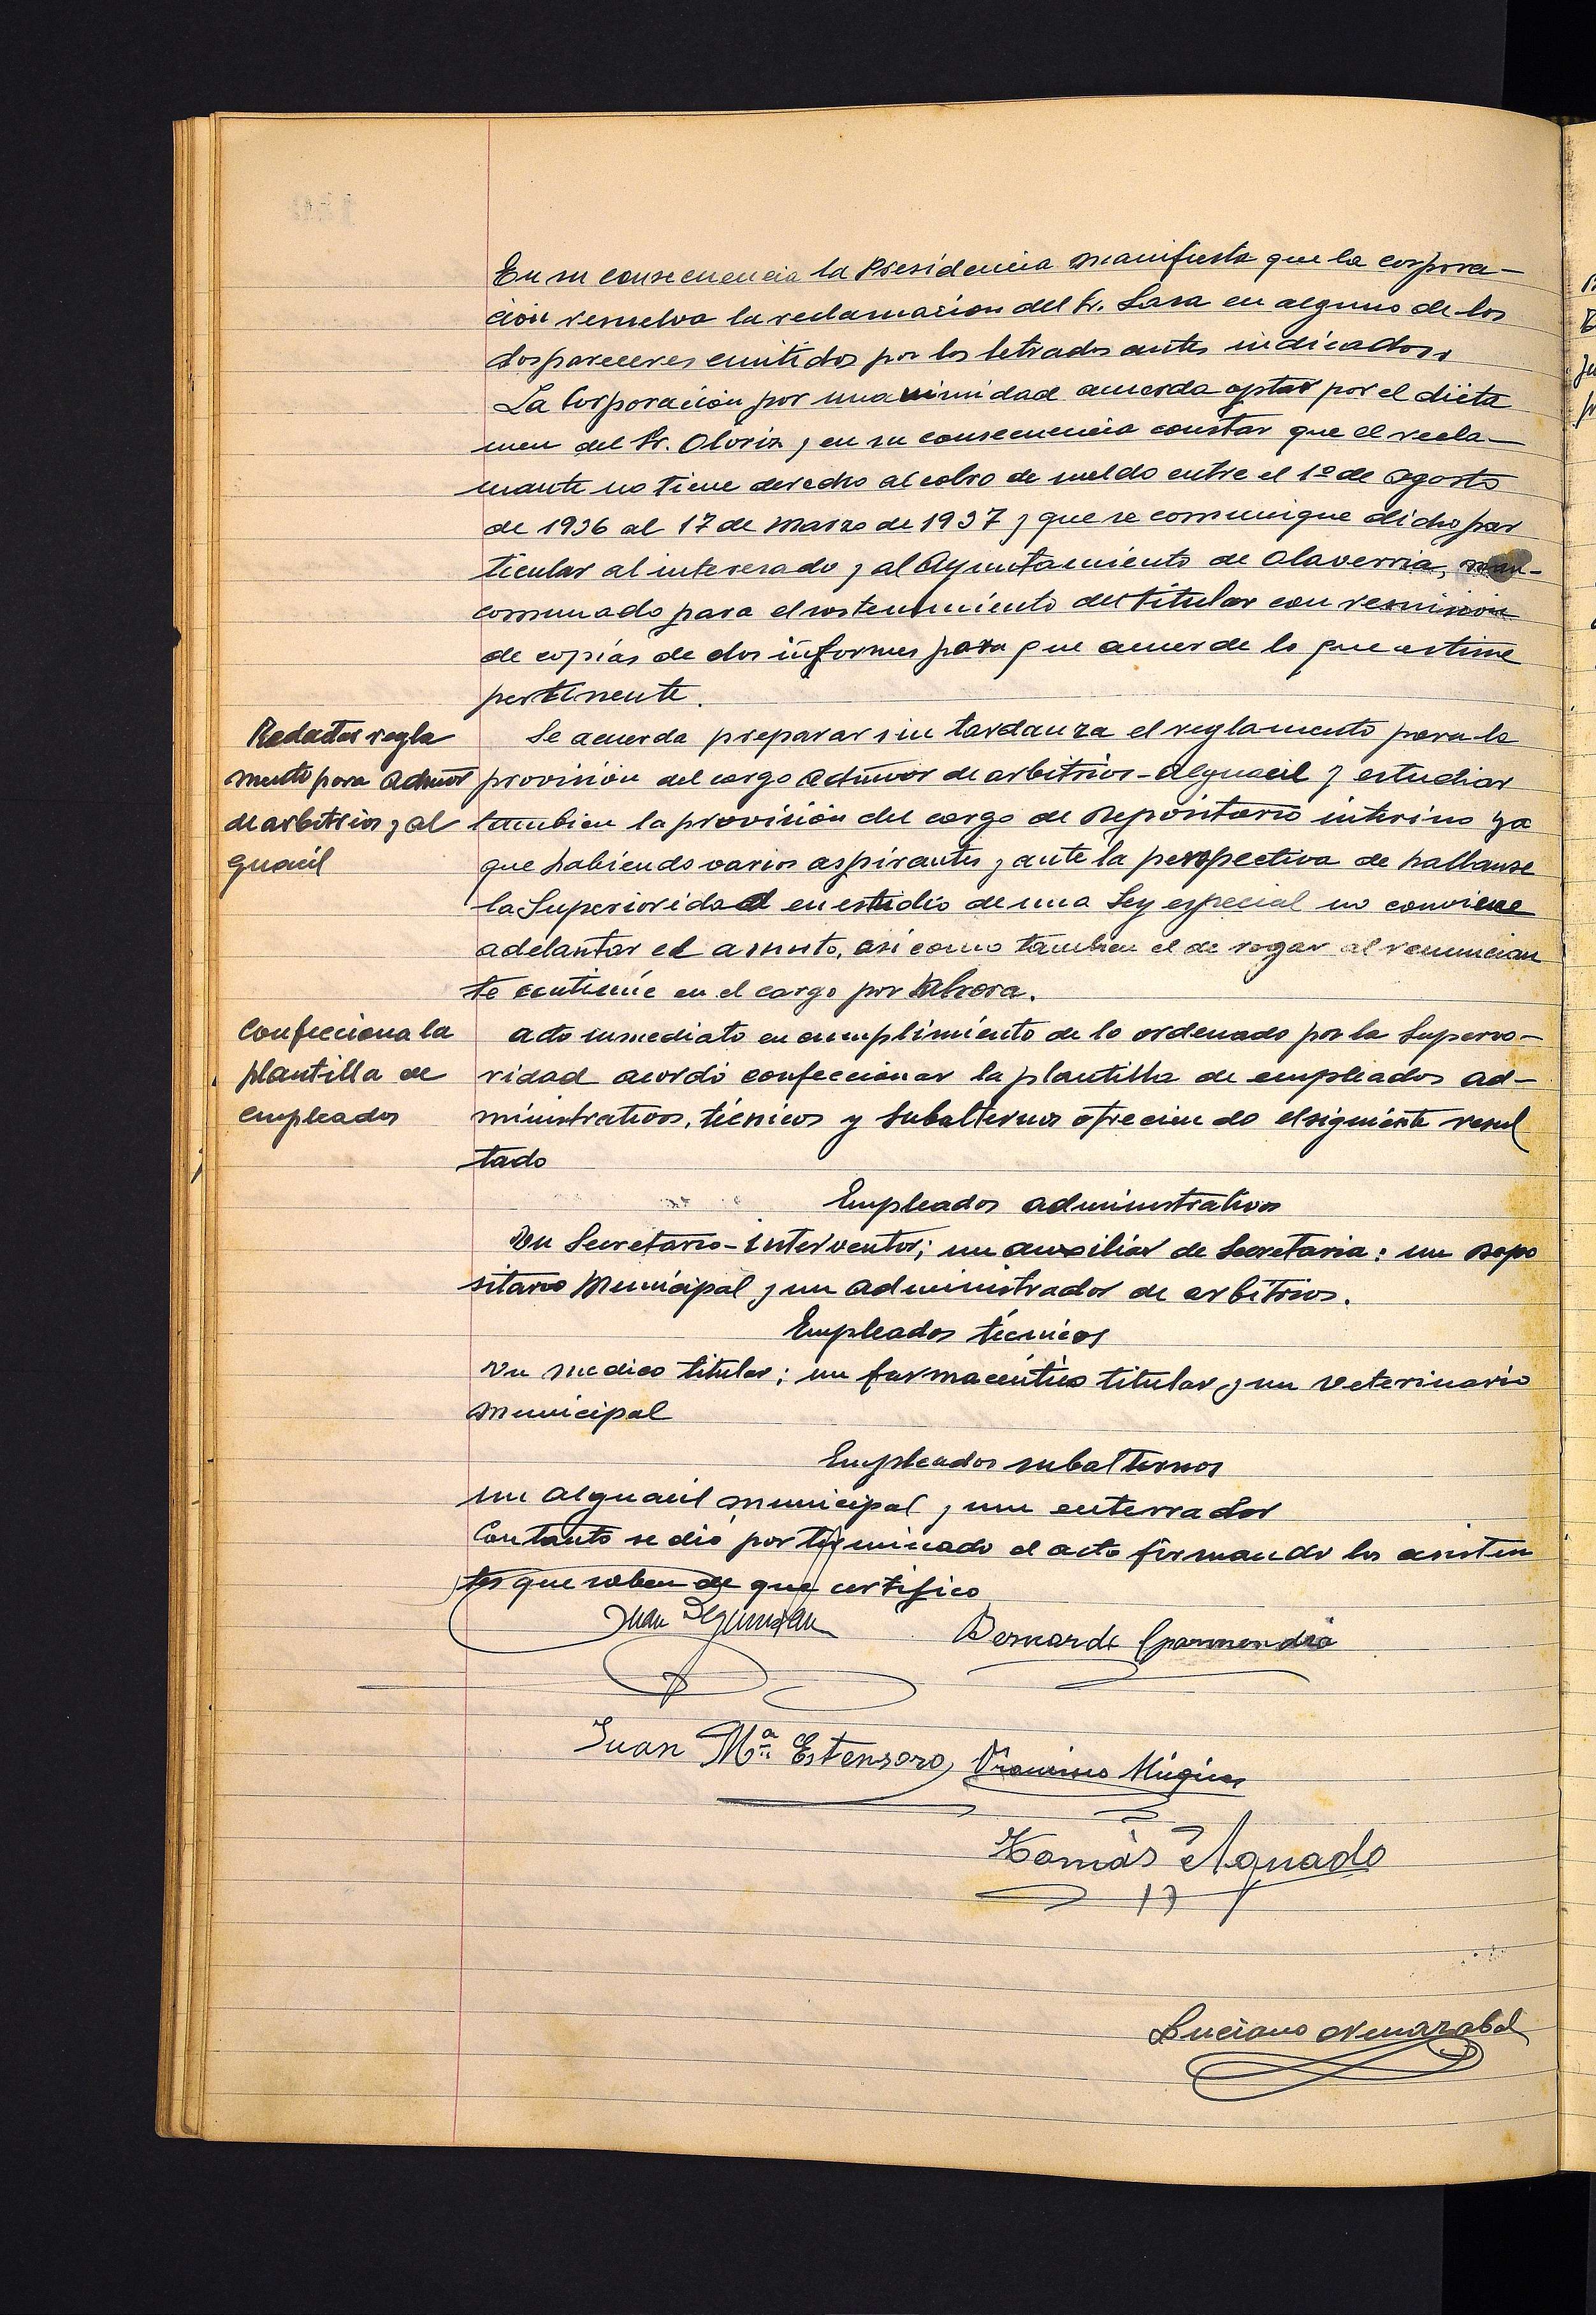 En su consecuencia la Presidencia manifiesta que la corpora-
ción resuelva la reclamacion del Sr. Lasa en alguno de los
dos pareceres emitidos por los letrados antes indicados.
La Corporación por unanimidad acuerda optar por el dicta
men del Sr. Oloriz y en su consecuencia constar que el recla-
mante no tiene derecho al cobro de sueldo entre el 1º de agosto
de 1936 al 17 de Marzo de 1937 y que se comunique dicho par
ticular al interesado y al Ayuntamiento de Olaverria, man-
comunado para el sostenimiento del titular con remision
de copias de dos informes para que acuerde lo que estime
pertinente.
Redactar regla
mento para Admor
de arbitrios y al
guacil
Se acuerda preparar sin tardanza el reglamento para la
provisión del cargo Admor de arbitrios-Alguacil y estudiar
tambien la provisión del cargo de Depositario interino ya
que habiendo varios aspirantes y ante la perspectiva de hallarse
la Superioridad en estudio de una Ley especial no conviene
adelantar el asunto, asi como tambien el de rogar al renuncian
te continúe en el cargo por ahora.
Confecciona la
plantilla de
empleados
Acto inmediato en cumplimiento de lo ordenado por la Superio-
ridad acordó confeccionar la plantilla de empleados ad-
ministrativos, técnicos y Subalternos ofreciendo el siguiente resul
tado
Empleados administrativos
Un Secretario-Interventor; un auxiliar de Secretaria: un Depo
sitario Municipal y un administrador de arbitrios.
Empleados técnicos
Un medico titular; un farmacéutico titular y un Veterinario
Municipal
Empleados subalternos
Un alguacil municipal y un enterrador
Con tanto se dio por terminado el acto firmando los asisten
tes que saben de que certifico
Juan
Bernardo Garmendia
Juan Mª Estensoro Francisco Múgica
Tomás Aguado
Luciano